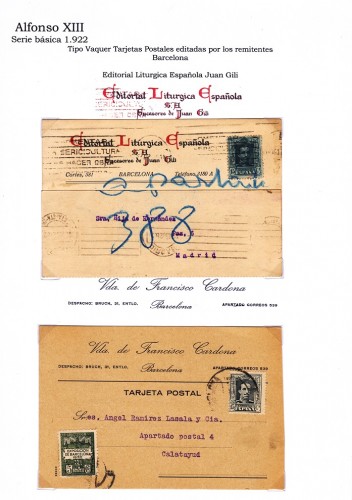 Alfonso XIII
Serie básica 1.922
Tipo Vaquer Tarjetas Postales editadas por los remitentes
Barcelona
Editorial Liturgica Española Juan Gili
Editorial Liturgica Española
S. A.
Sucesores de Juan Gili
Editorial Liturgica Española
S. A.
Sucesores de Juan Gili
SERICICULTURA
Cortes, 581 BARCELONA Teléfono, 3180 A
apartado
388
Sra. Hija de Hernández
Madrid
Vda. de Francisco Cardona
DESPACHO: BRUCH, 21, ENTLO. Barcelona APARTADO CORREOS 639
Vda. de Francisco Cardona
DESPACHO: BRUCH, 21, ENTLO. Barcelona APARTADO CORREOS 639
TARJETA POSTAL
Sres. Angel Ramirez Lasala y Cia.
Apartado postal 4
Calatayud
EXPOSICION
DE BARCELONA